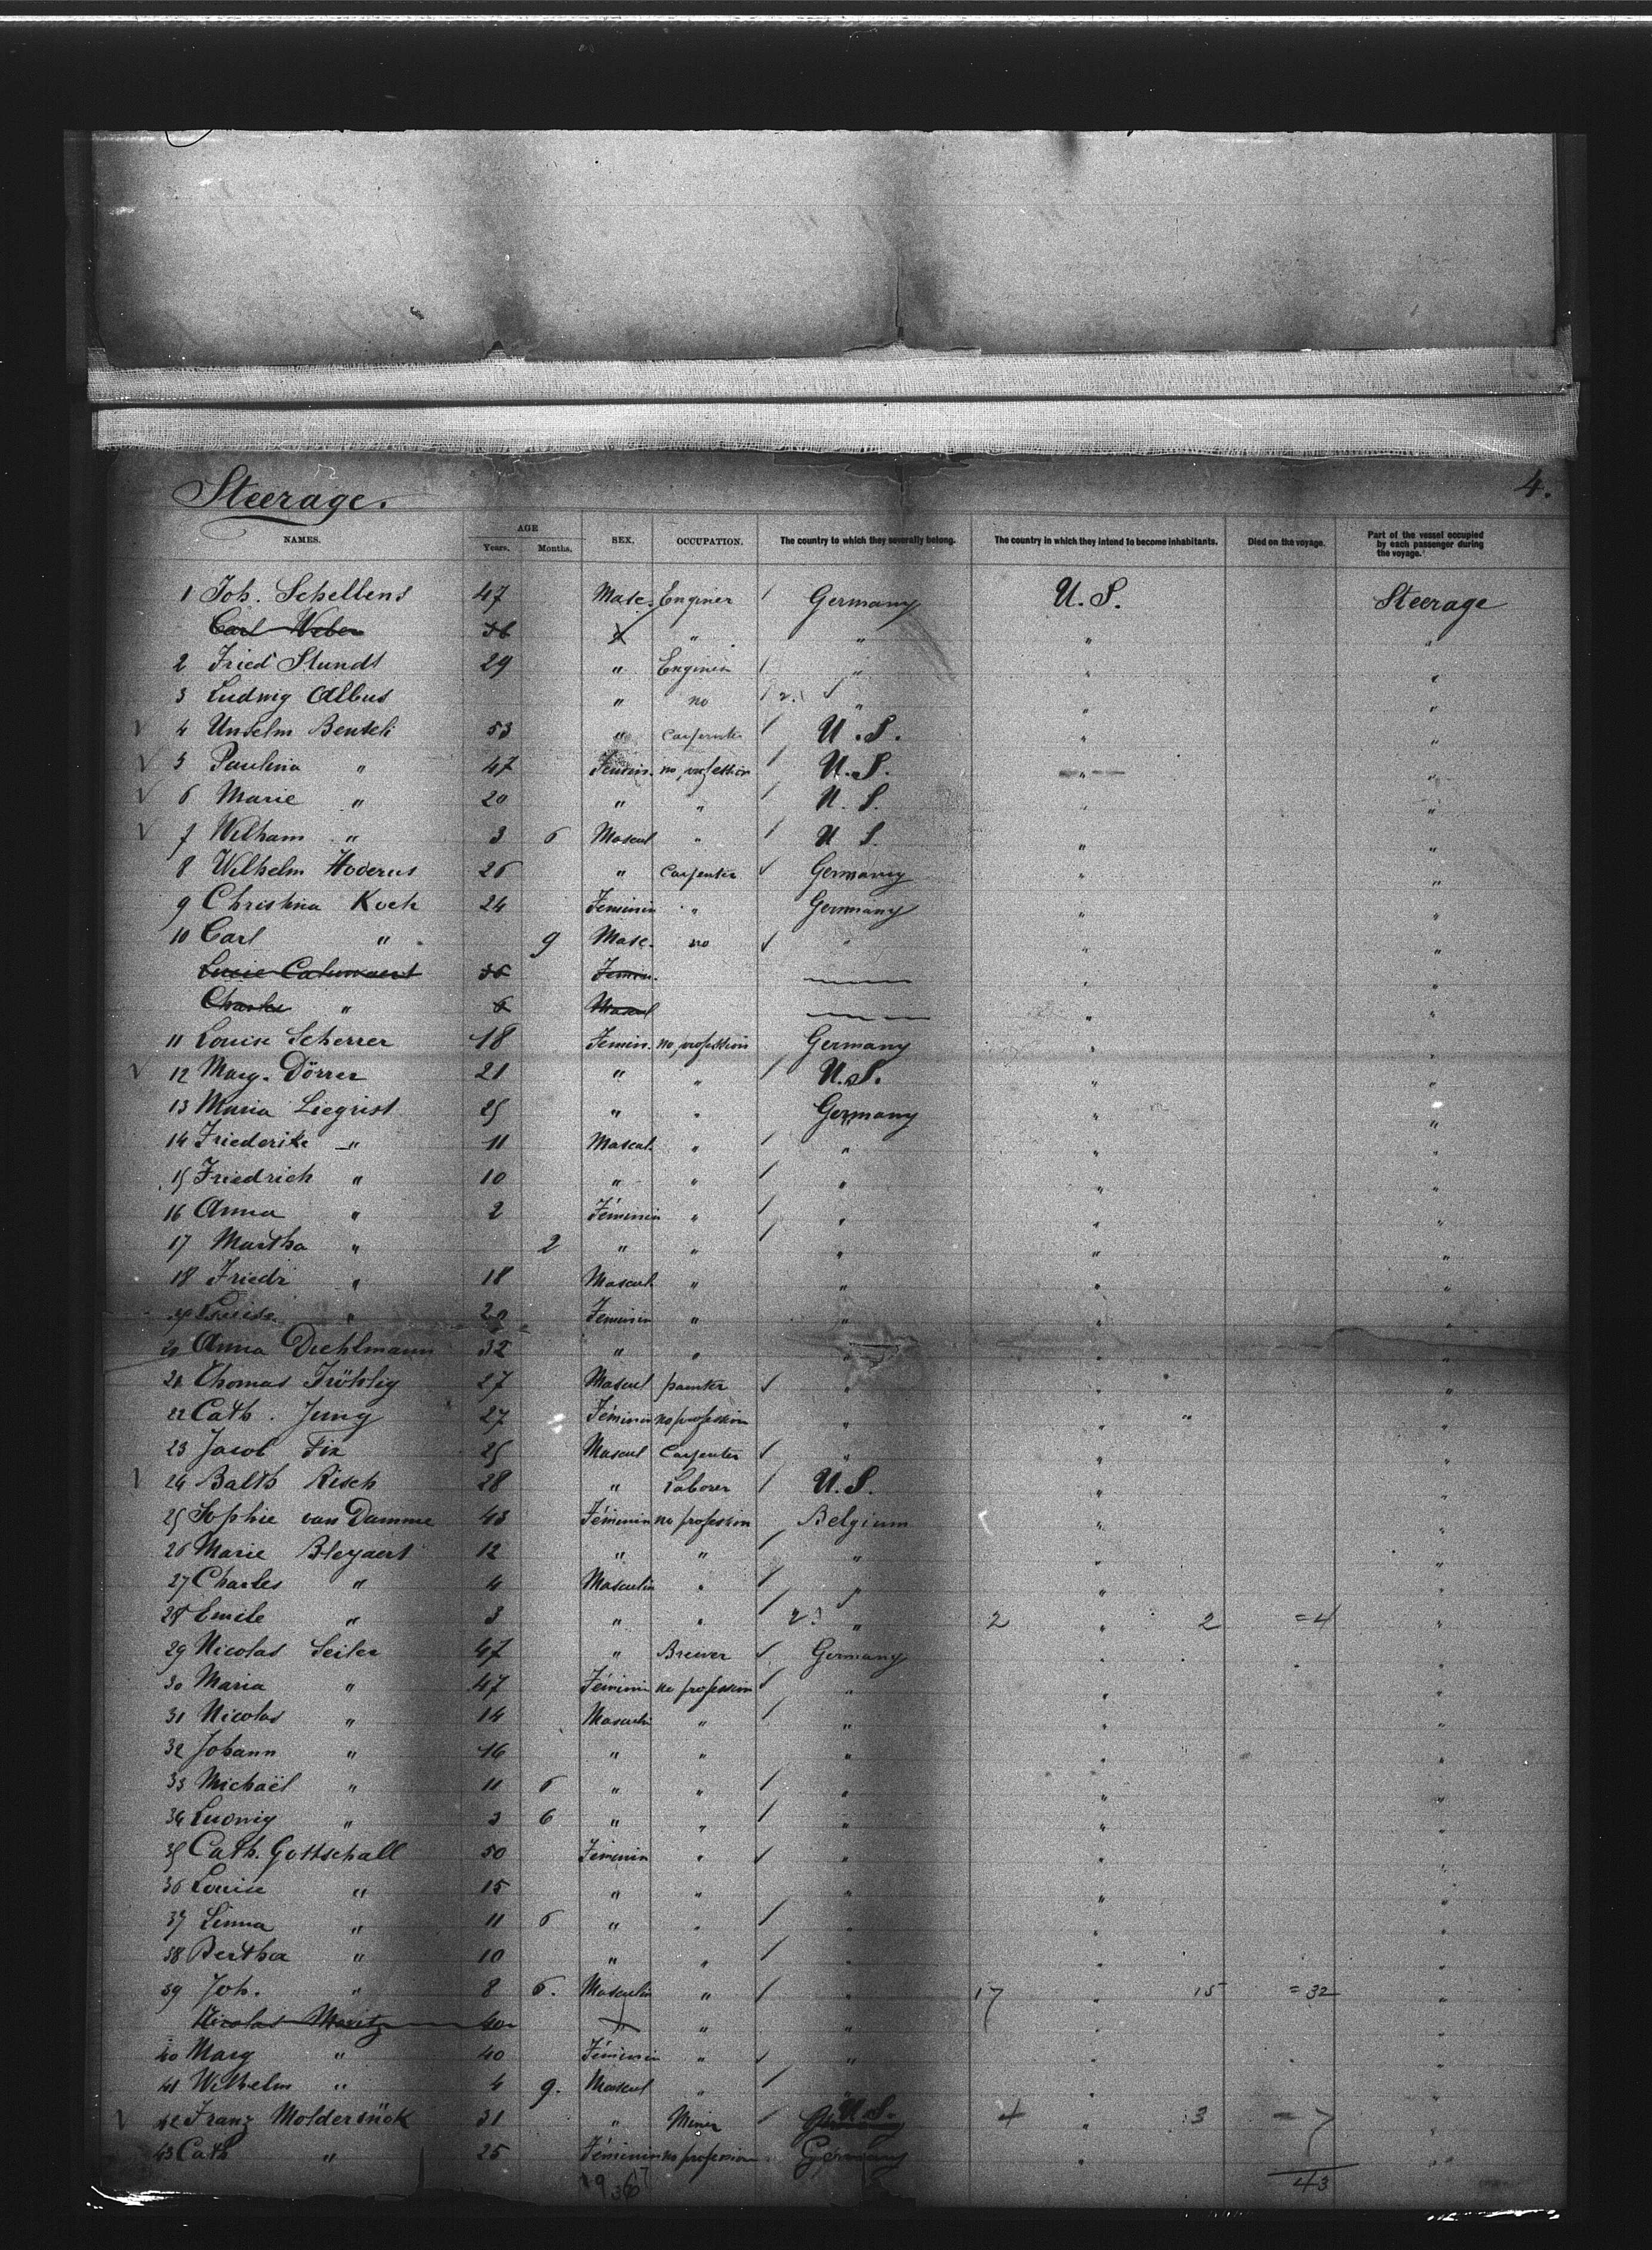 Steerage. 4.
NAMES. AGE Years. Months. SEX. OCCUPATION. The country to which they severally belong. The country in which they intend to become inhabitants. Died on the voyage. Part of the vessel occupied by each passenger during the voyage.
1 Joh. Schellens 47 Masc. Enginer / Germany U. S. Steerage
Carl Weber 36 " " " " "
2 Fried Stundt 29 " Enginer / " " "
3 Ludwig Albus " no / 2. " " "
√ 4 Anselm Benteli 53 " Carpenter / U. S. " "
√ 5 Paulina " 47 Femin. no profession / U. S. " "
√ 6 Marie " 20 " " / U. S. " "
√ 7 Wilham " 3 6 Mascul " / U S. " "
8 Wilhelm Hoderus 26 " Carpenter √ Germany " "
9 Christina Koch 24 Feminin " Germany " "
10 Carl " 9 Masc. no √ " " "
Lucie 36 Femin. " "
Charles " 6 Mascul " "
11 Louise Scherrer 18 Femin. no profession Germany " "
√ 12 Marg. Dörrer 21 " " / U. S. " "
13 Maria Liegrist 25 " " Germany " "
14 Friederike " 11 Mascul. " / " " "
15 Friedrich " 10 " " / " " "
16 Anna " 2 Féminin " / " " "
17 Martha " 2 " " / " " "
18 Friedr " 18 Mascul " " " "
Louise " 20 Feminin " " " "
20 Anna Diehlmann 32 " " " " "
21 Thomas Fröhlig 27 Mascul painter √ " " "
22 Cath. Jung 27 Féminin no profession " " "
23 Jacob Fix 25 Mascul Carpenter √ " " "
√ 24 Balth Risch 28 " Laborer / U. S. " "
25 Sophie van Damme 43 Féminin no profession Belgium " "
26 Marie Bleyaert 12 " " / " " "
27 Charles " 4 Masculin " / " "
28 Emile " 3 " " / 2. " 2 " 2 =4 "
29 Nicolas Seiler 47 " Brewer √ Germany " "
30 Maria " 47 Féminin no profession √ " " "
31 Nicolas " 14 Masculin " / " " "
32 Johann " 16 " " " " "
33 Michaël " 11 6 " " / " " "
34 Ludwig " 3 6 " " / " " "
35 Cath. Gottschall 50 Féminin " √ " " "
36 Louise " 15 " " " " "
37 Linna " 11 6 " " / " " "
38 Bertha " 10 " " / " " "
39 Joh. " 8 6. Masculin " / " 17 " 15 =32 "
Nicolas Moritz 40 " " " " "
40 Marg " 40 Féminin " √ " " "
41 Wilhelm " 4 9. Mascul " / " "
√ 42 Franz Moldersück 31 " Miner / U. S. 4 " 3 = 7 "
43 Cath " 25 Féminin no profession Germany " "
43